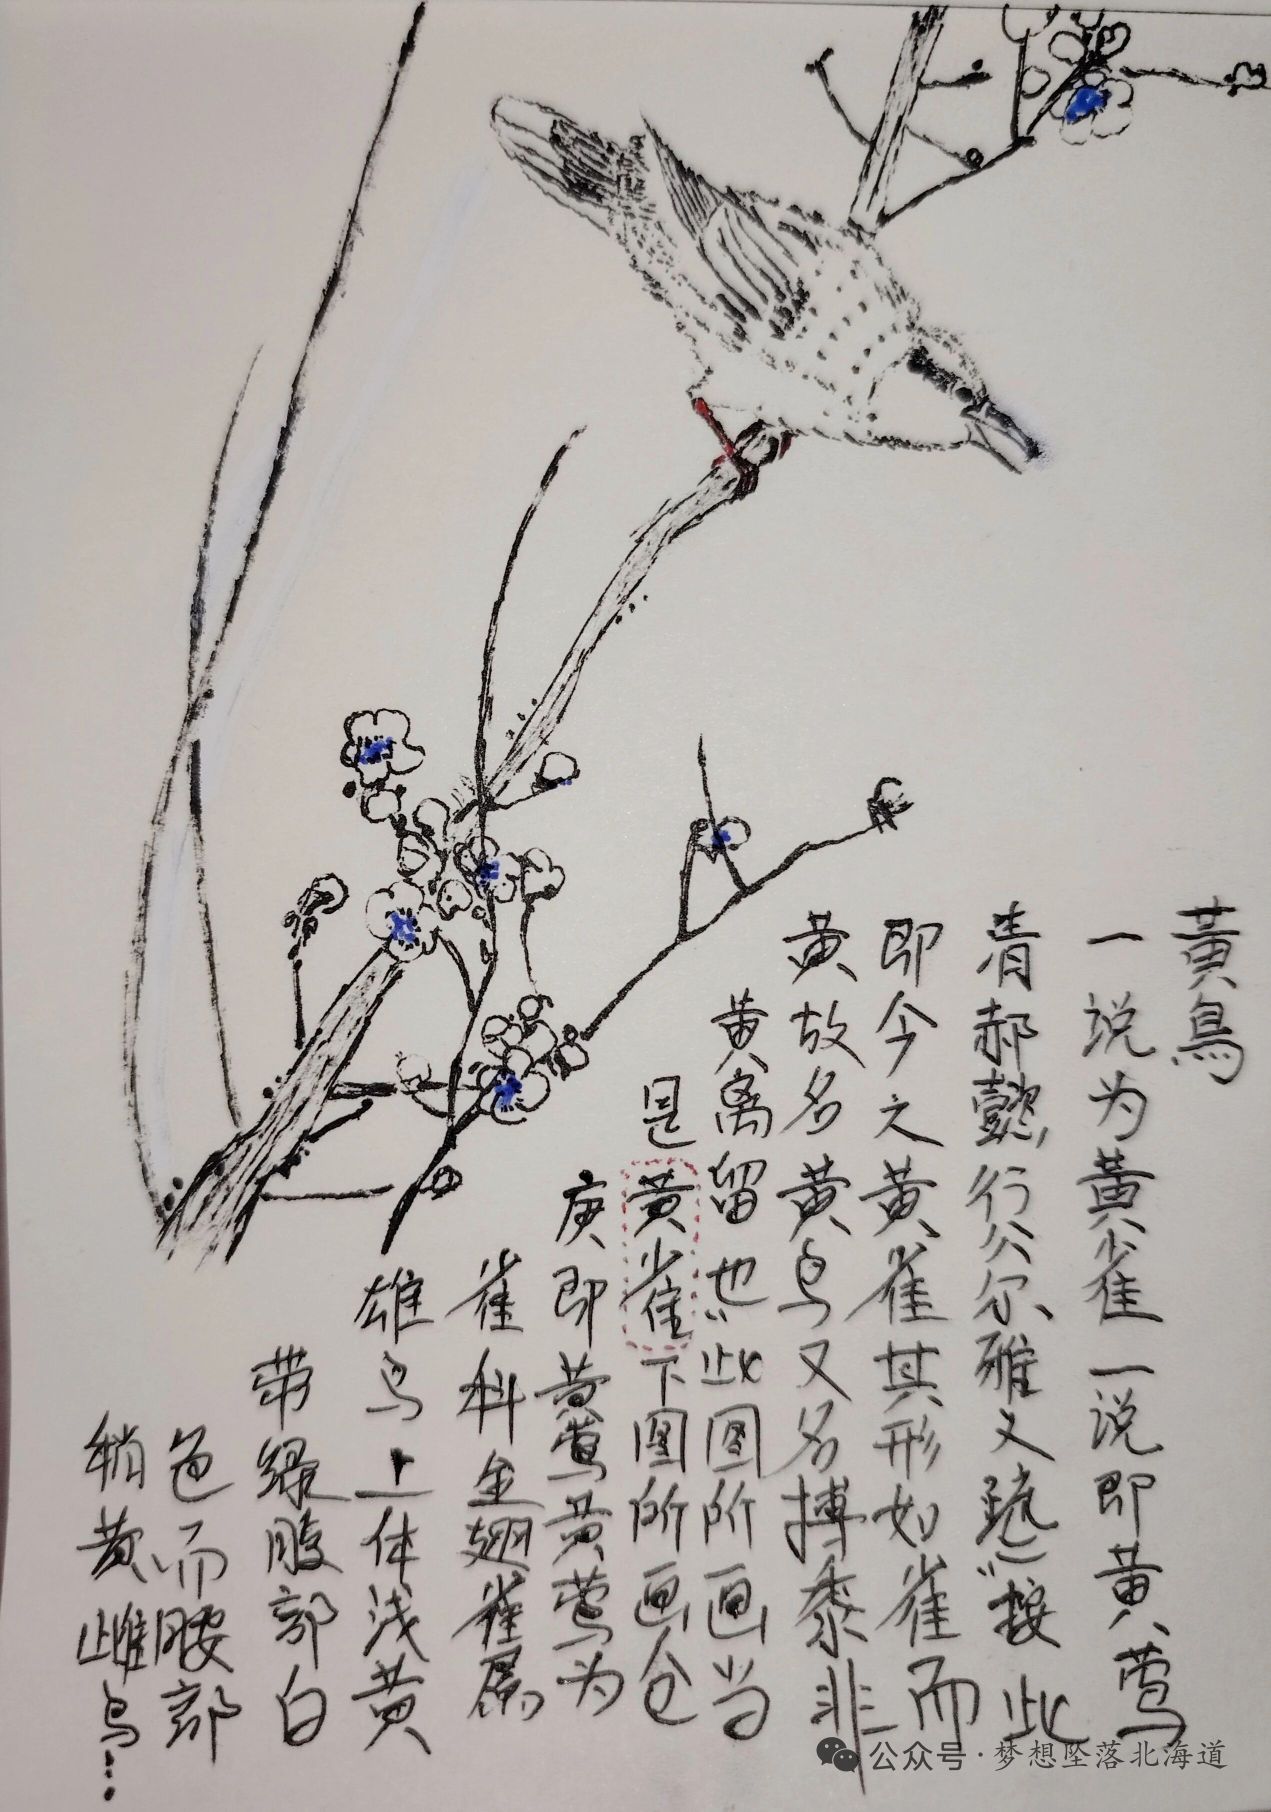 黃鳥
一说为黄雀一说即黄莺
清郝懿行《尔雅义疏》"按此
即今之黄雀其形如雀而
黄故名黄鸟又名搏黍非
黄离留也"此图所画当
是黄雀下图所画仓
庚即黄莺黄莺为
雀科金翅雀属
雄鸟上体浅黄
带绿腹部白
色而腰部
稍黄雌鸟…
公众号·梦想坠落北海道